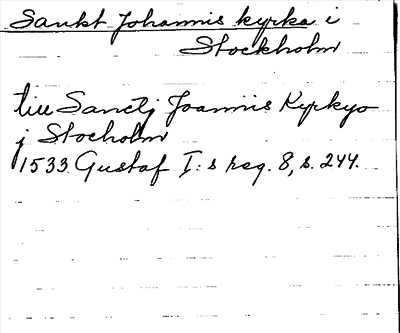 Sankt Johannis kyrka i
Stockholm
till Sanctj Joannis Kyrkyo
j Stocholm
1533 Gustaf I:s reg. 8, s. 244.